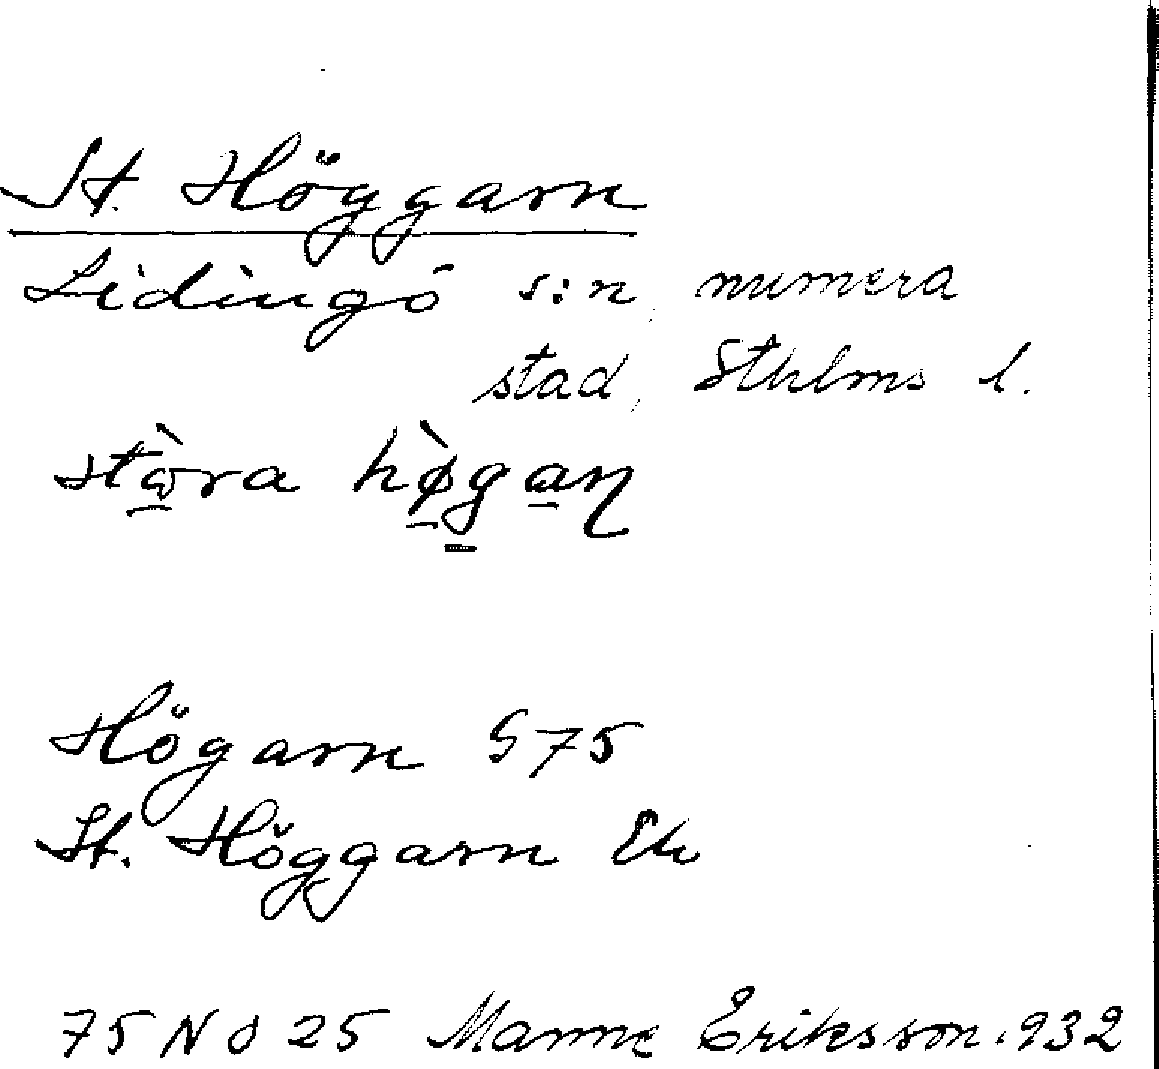 St. Höggarn
Lidingö s:n, numera
stad, Sthlms l.
stòra hø̀gaɳ
Högarn S75
St. Höggarn Ek
75 NO 25 Manne Eriksson 1932